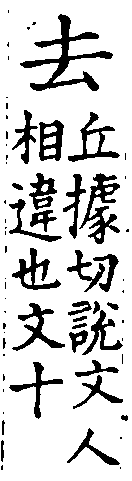 去
丘據切說文人
相違也文十